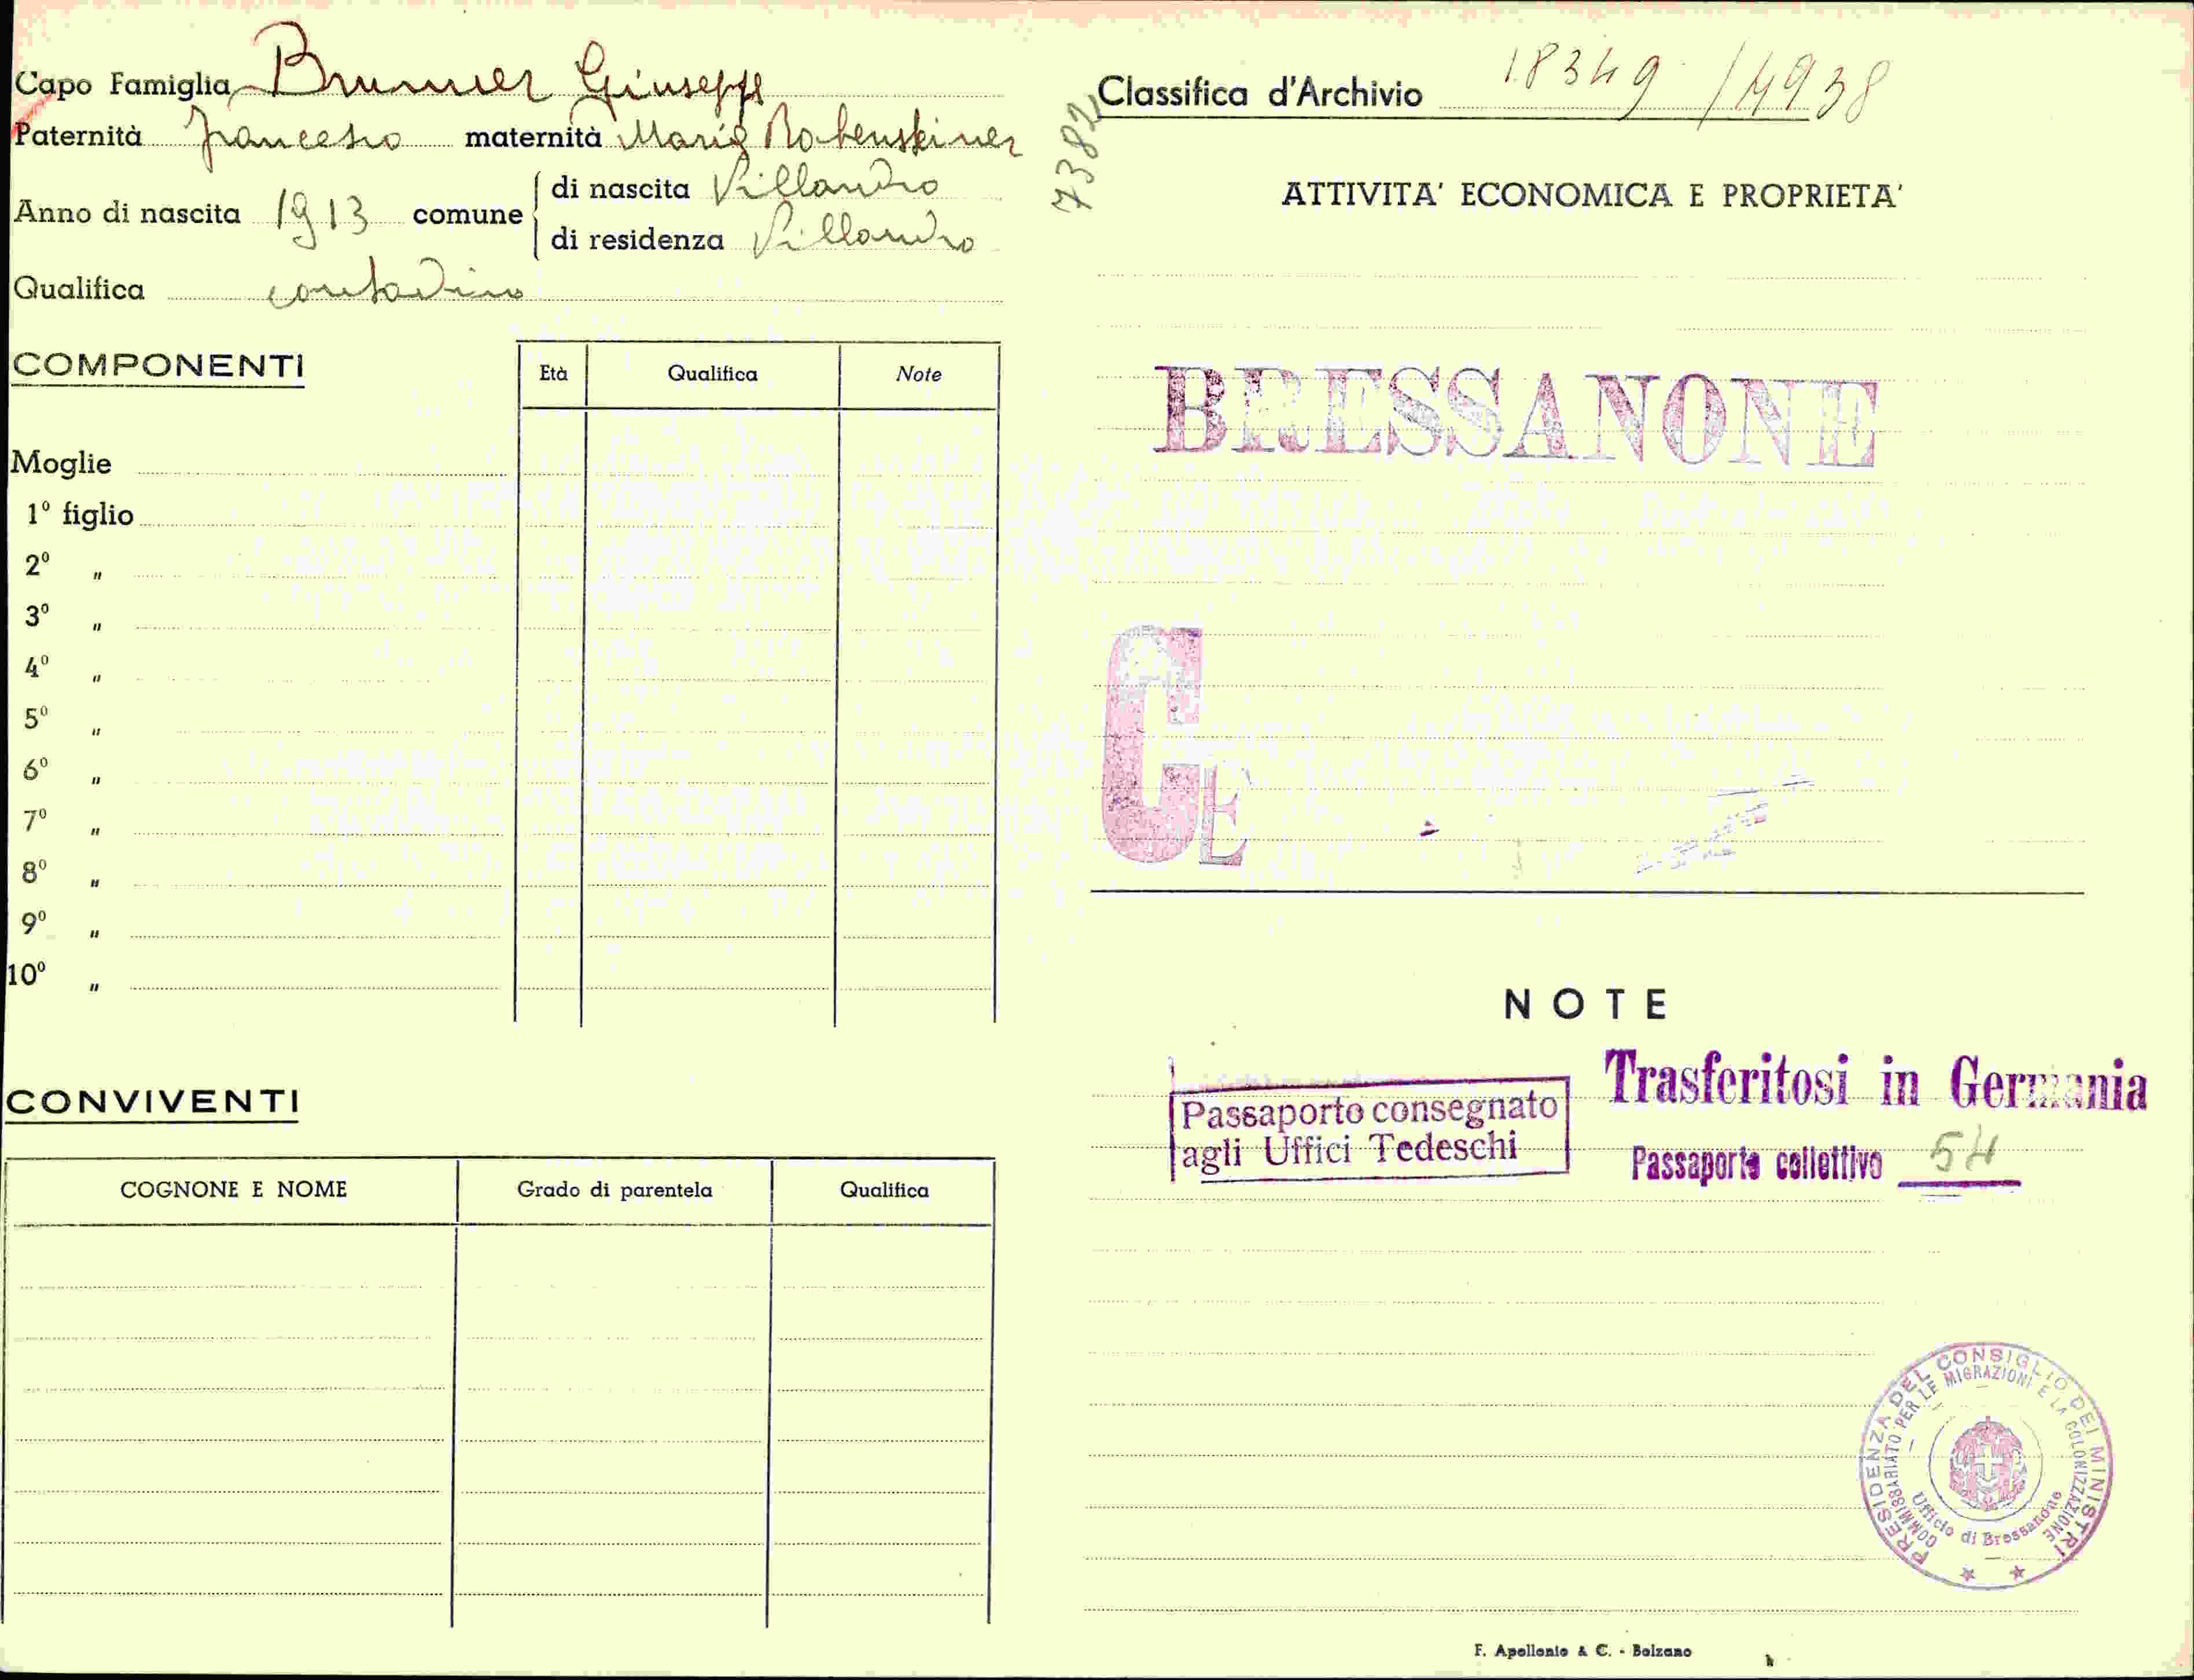 Capo Famiglia Brunner Giuseppe
Paternità Francesco maternità Maria Rabensteiner
Anno di nascita 1913 comune
di nascita Villandro
di residenza Villandro
Qualifica contadino
COMPONENTI
Età Qualifica Note
Moglie
1º figlio
2º "
3º "
4º "
5º "
6º "
7º "
8º "
9º "
10º "
CONVIVENTI
COGNONE E NOME Grado di parentela Qualifica
7382
Classifica d'Archivio 18349 / 4938
ATTIVITA' ECONOMICA E PROPRIETA'
BRESSANONE
CE
NOTE
Passaporto consegnato
agli Uffici Tedeschi
Trasferitosi in Germania
Passaporto collettivo 54
PRESIDENZA DEL CONSIGLIO DEI MINISTRI
COMMISSARIATO PER LE MIGRAZIONI E LA COLONIZZAZIONE
Ufficio di Bressanone
F. Apollonio & C. - Bolzano